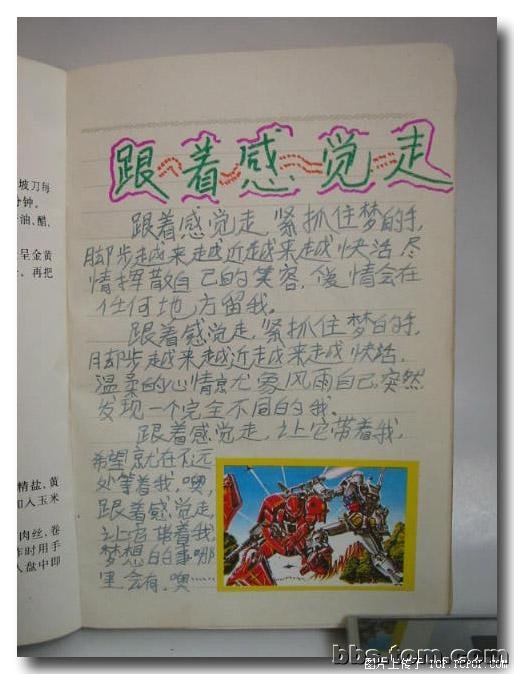 坡刀每
分钟。
油、醋、
呈金黄
、再把
精盐、黄
加入玉米
肉丝,卷
用手
入盘中即
跟着感觉走
跟着感觉走,紧抓住梦的手,
脚步越来越近越来越快活,尽
情挥散自己的笑容,
情会在
任何地方留我。
跟着感觉走,紧抓住梦的手,
脚步越来越近越来越快活,
温柔的心情
象风雨自己,突然
发现一个完全不同的我。
跟着感觉走,让它带着我,
希望就在不远
处等着我,噢,
跟着感觉走,
让它带着我,
梦想的的事哪
里会有,噢
bbs.tom.com
图片上传于